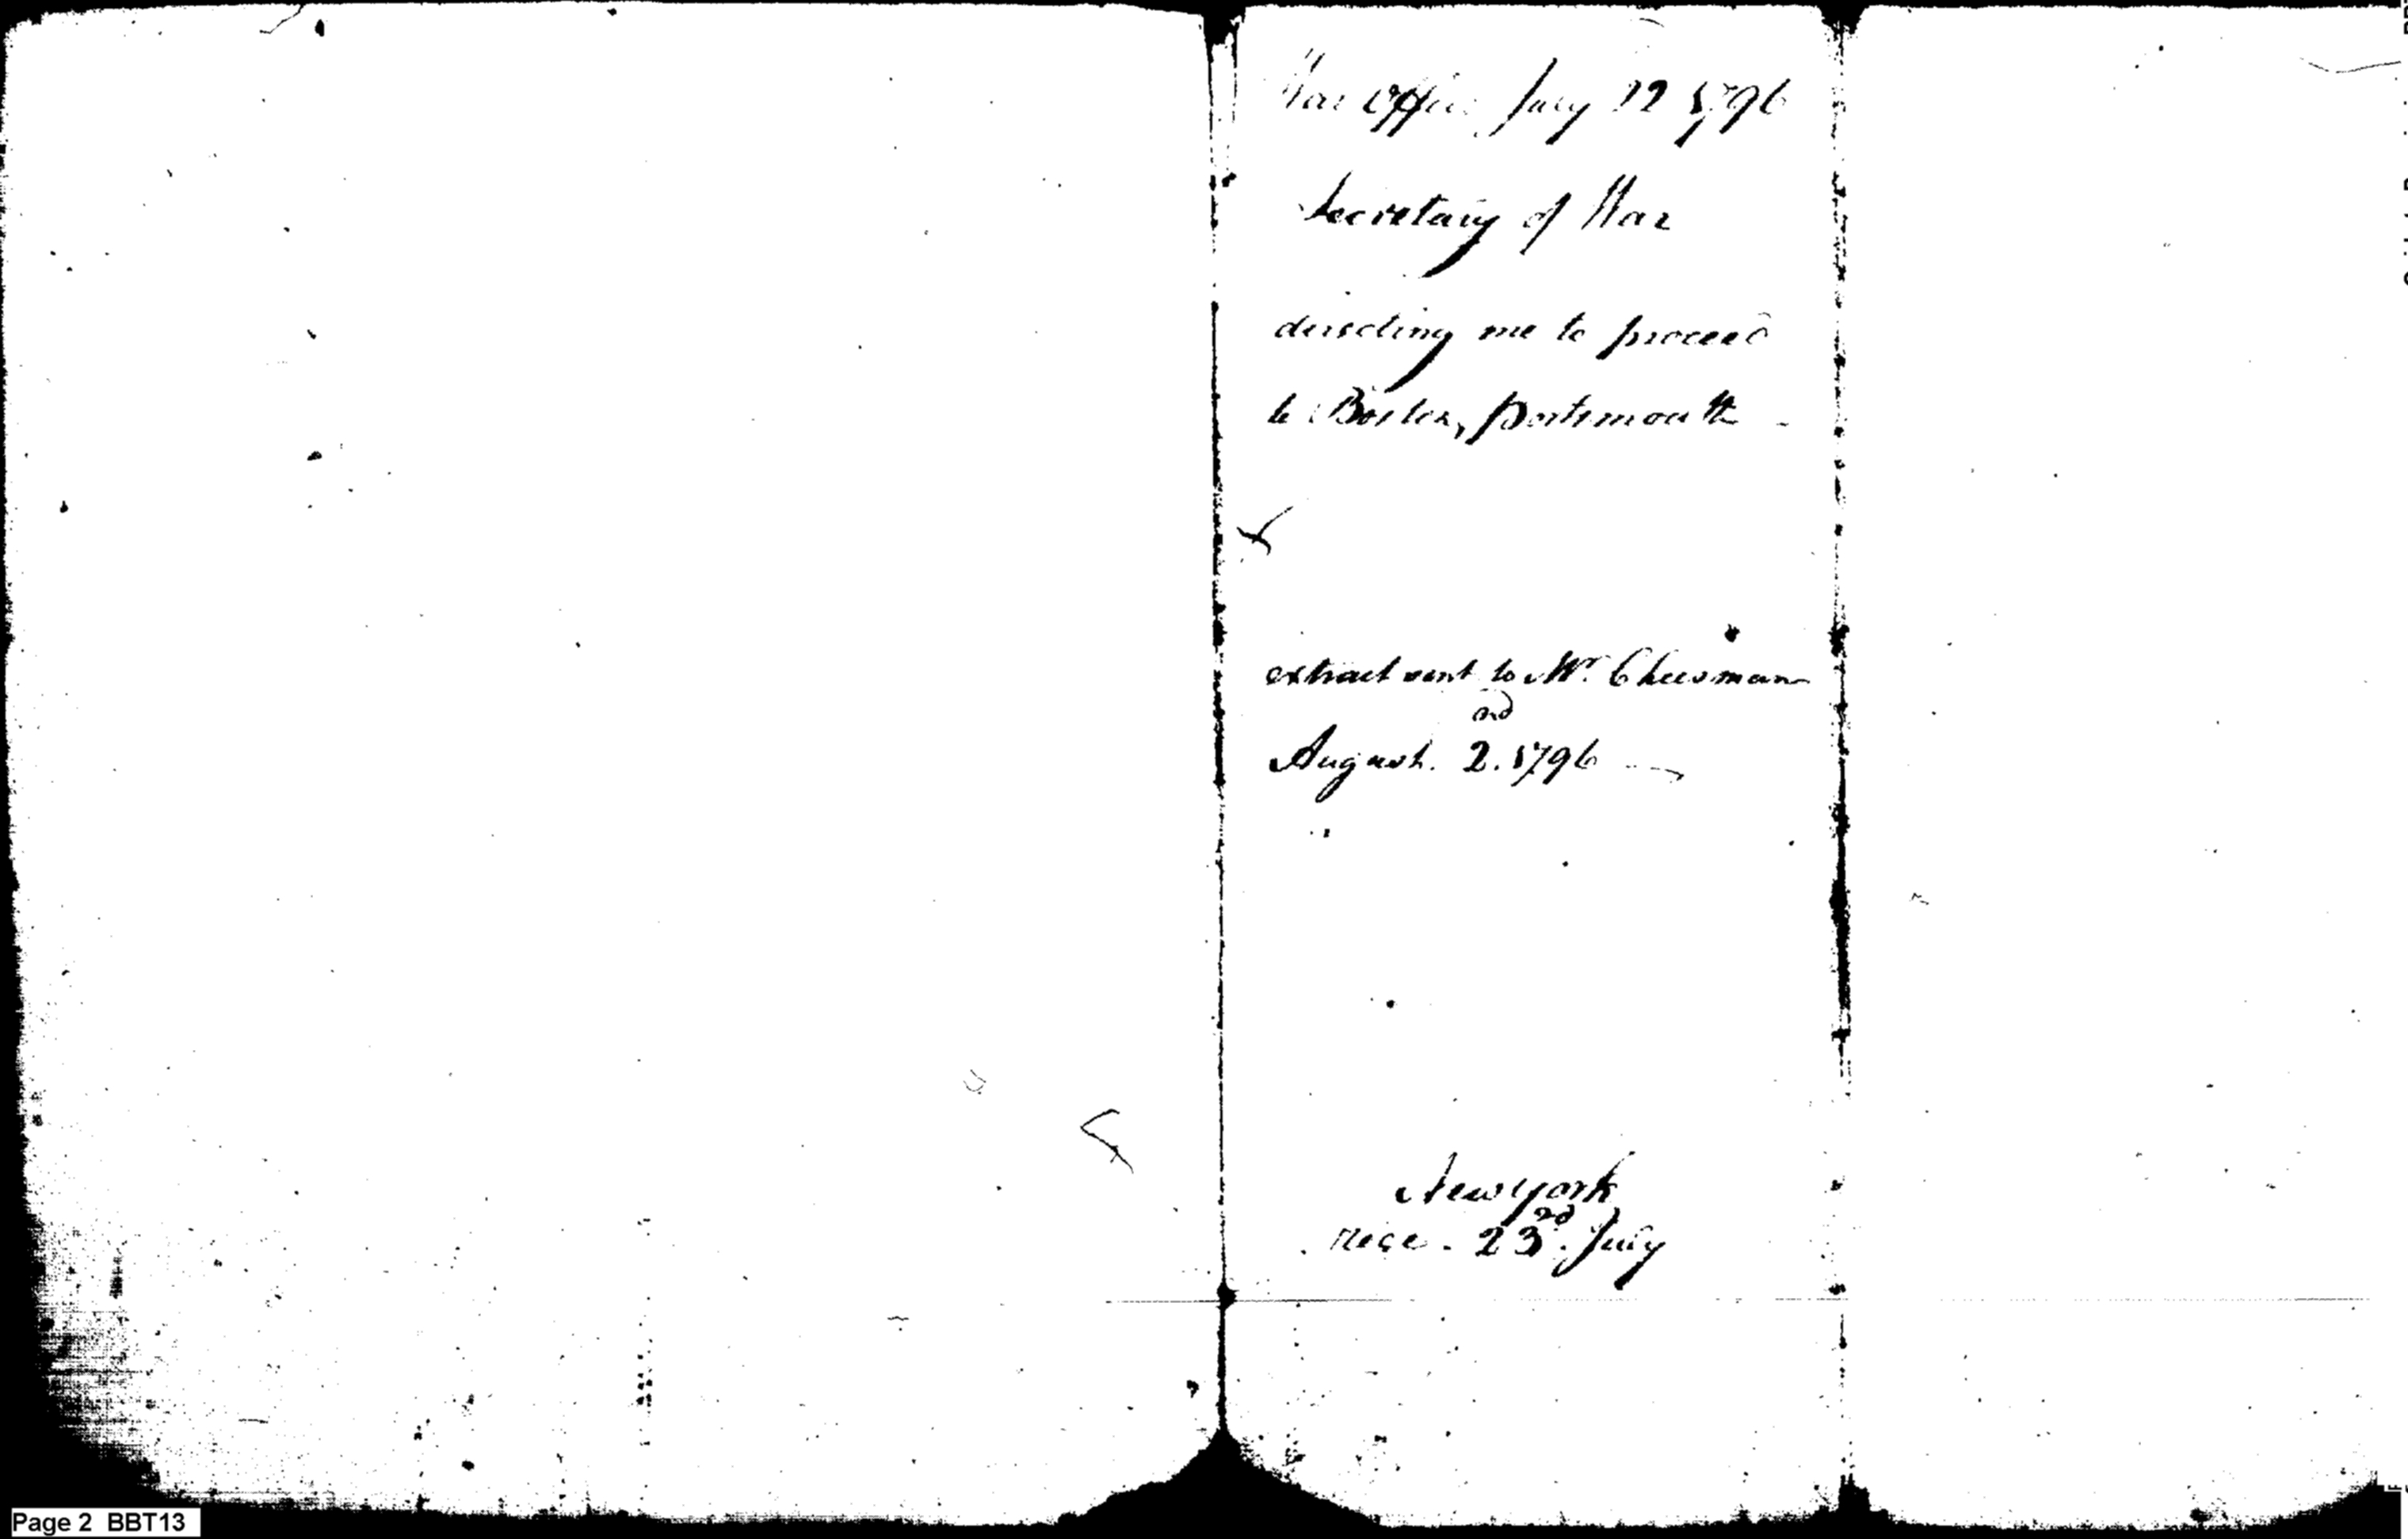 War Office July 22 1796
Secretary of War
directing me to proceed
to Boston, Portsmouth
extract sent to Mr. Cheesman
August. 2nd. 1796
New york
rece. 23rd. July
Page 2 BBT13